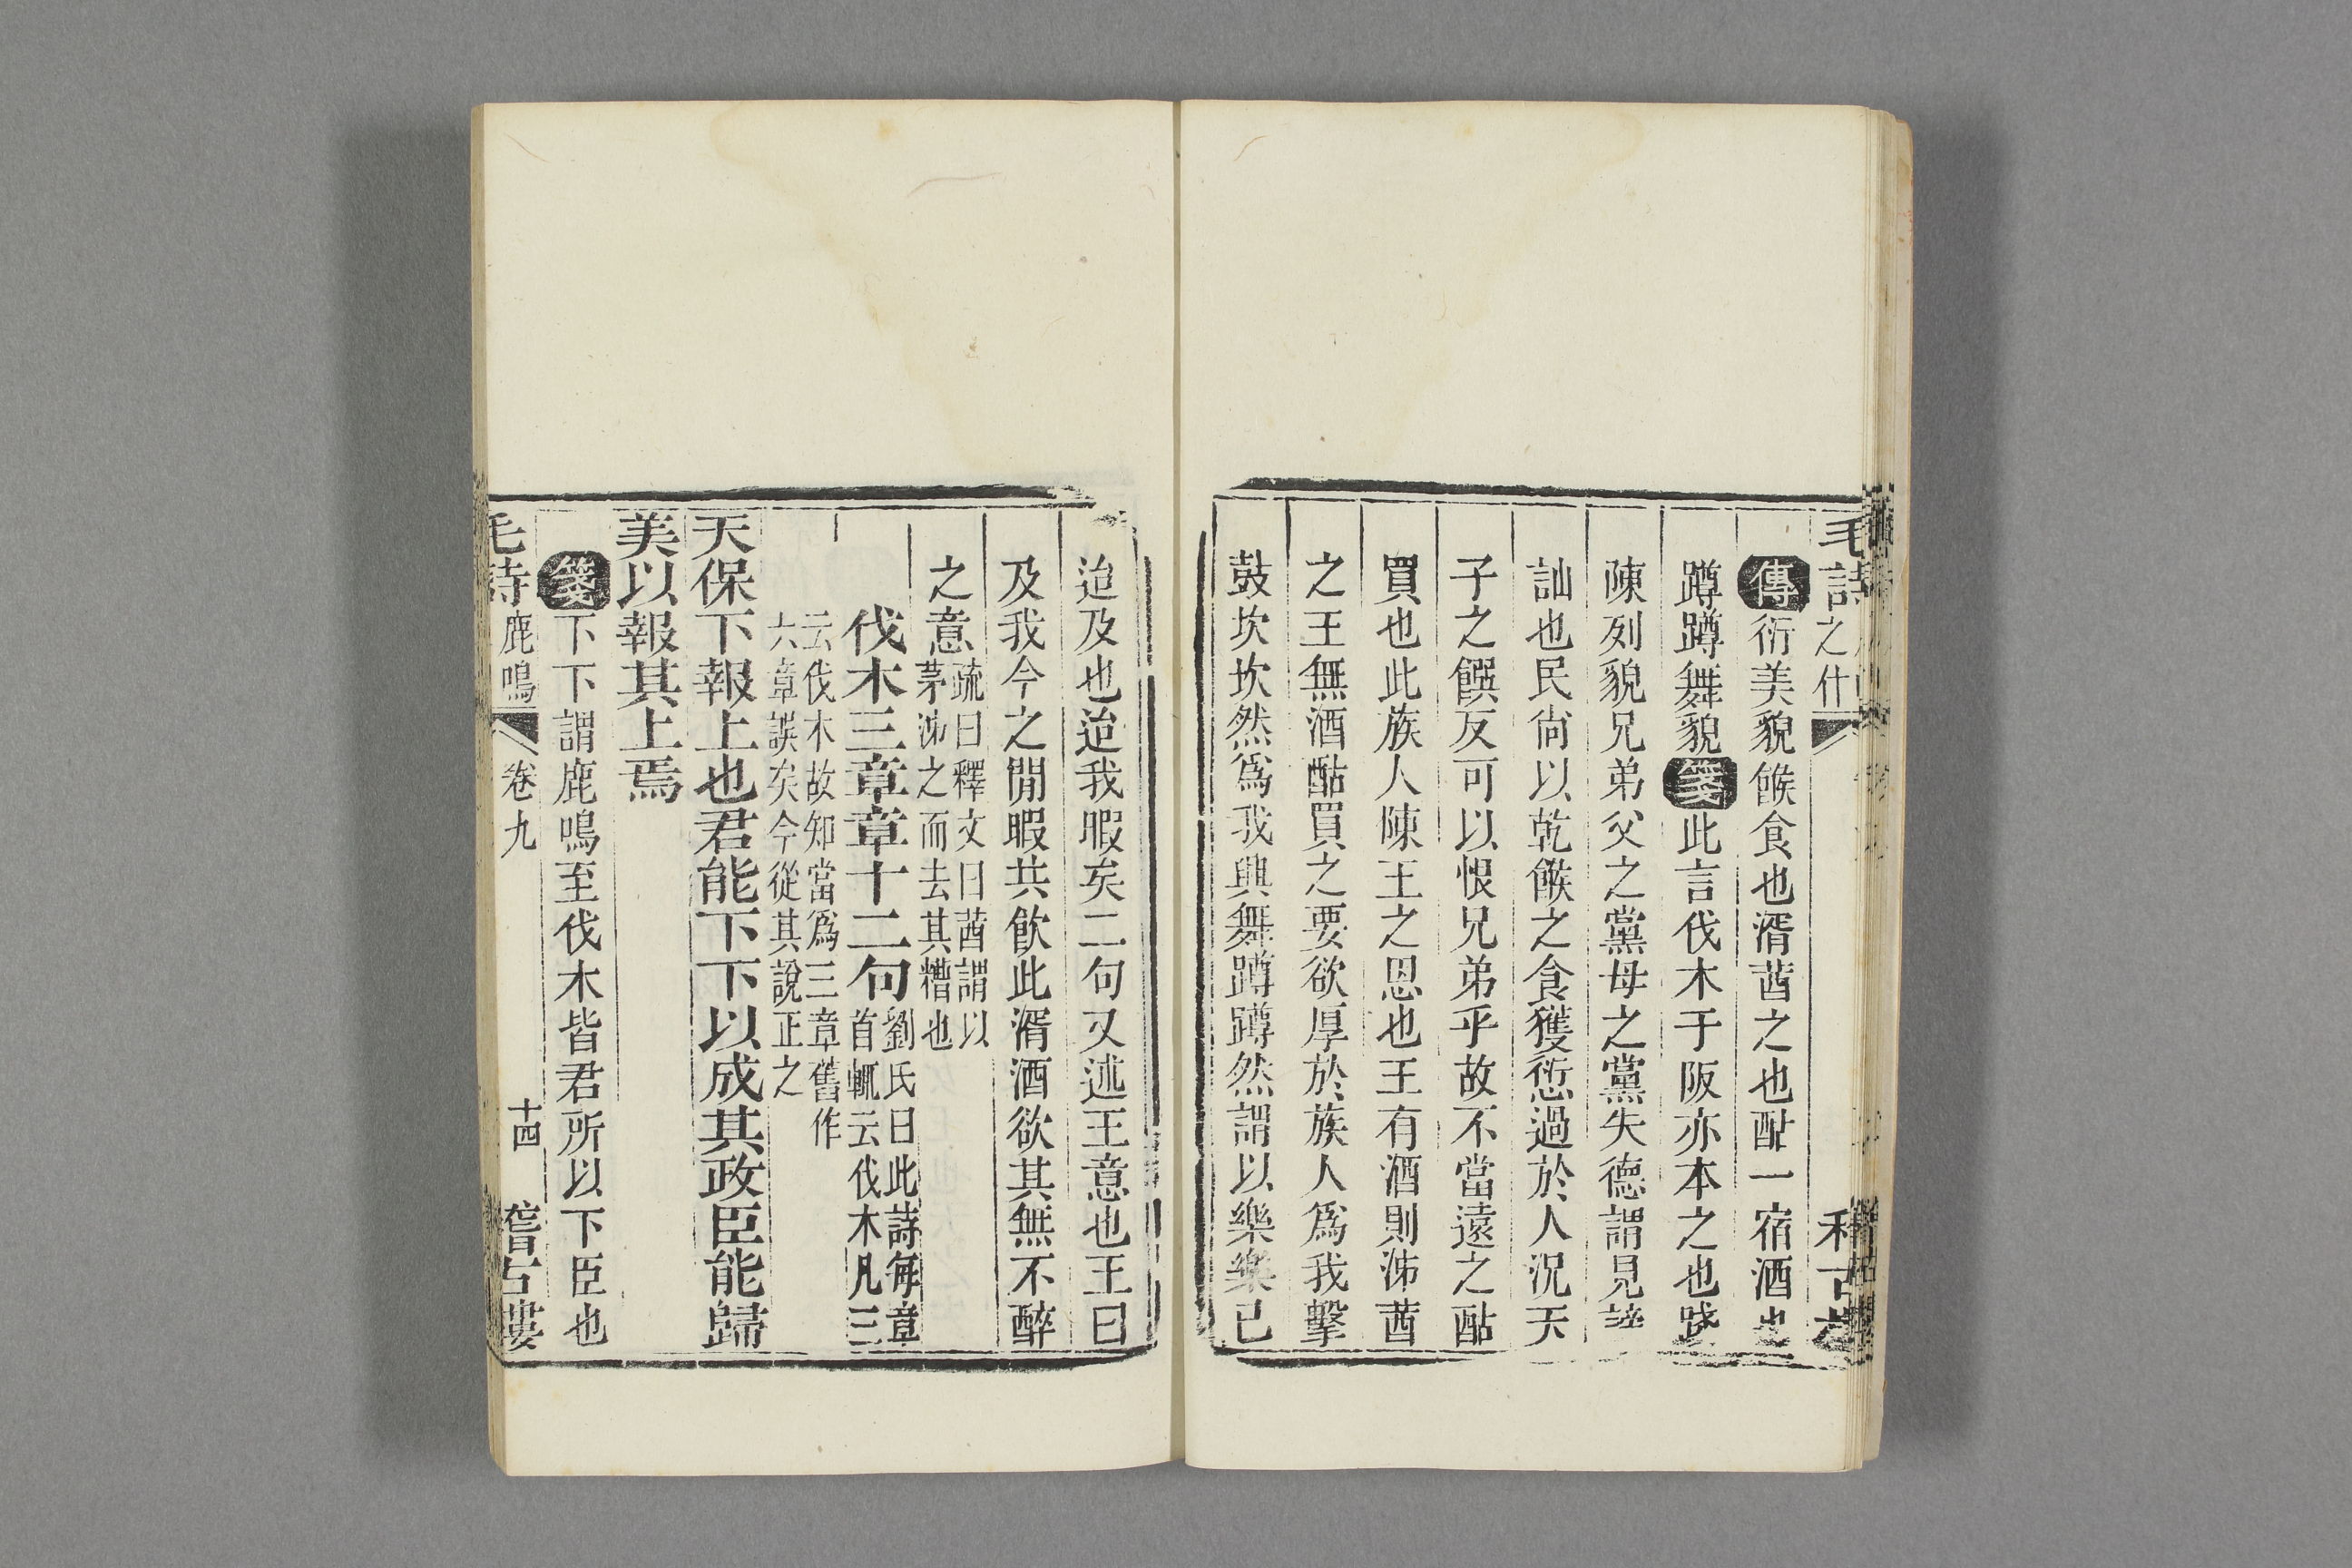 毛詩之什
傳衎美貌餱食也湑茜之也酤一宿酒也
蹲蹲舞貌箋此言伐木于阪亦本之也踐
陳列貌兄弟父之黨母之黨失德謂見謗
訕也民尙以乾餱之食獲愆過於人況天
子之饌反可以恨兄弟乎故不當遠之酤
買也此族人陳王之恩也王有酒則泲茜
之王無酒酤買之要欲厚於族人爲我擊
鼓坎坎然爲我興舞蹲蹲然謂以樂樂已
迨及也迨我暇矣二句又述王意也王曰
及我今之閒暇共飮此湑酒欲其無不醉
之意疏曰釋文曰茜謂以
茅泲之而去其糟也
伐木三章章十二句劉氏曰此詩每章
首輒云伐木凡三
云伐木故知當爲三章舊作
六章誤矣今從其說正之
天保下報上也君能下下以成其政臣能歸
美以報其上焉
箋下下謂鹿鳴至伐木皆君所以下臣也
毛詩鹿鳴 卷九 十四 稽古樓